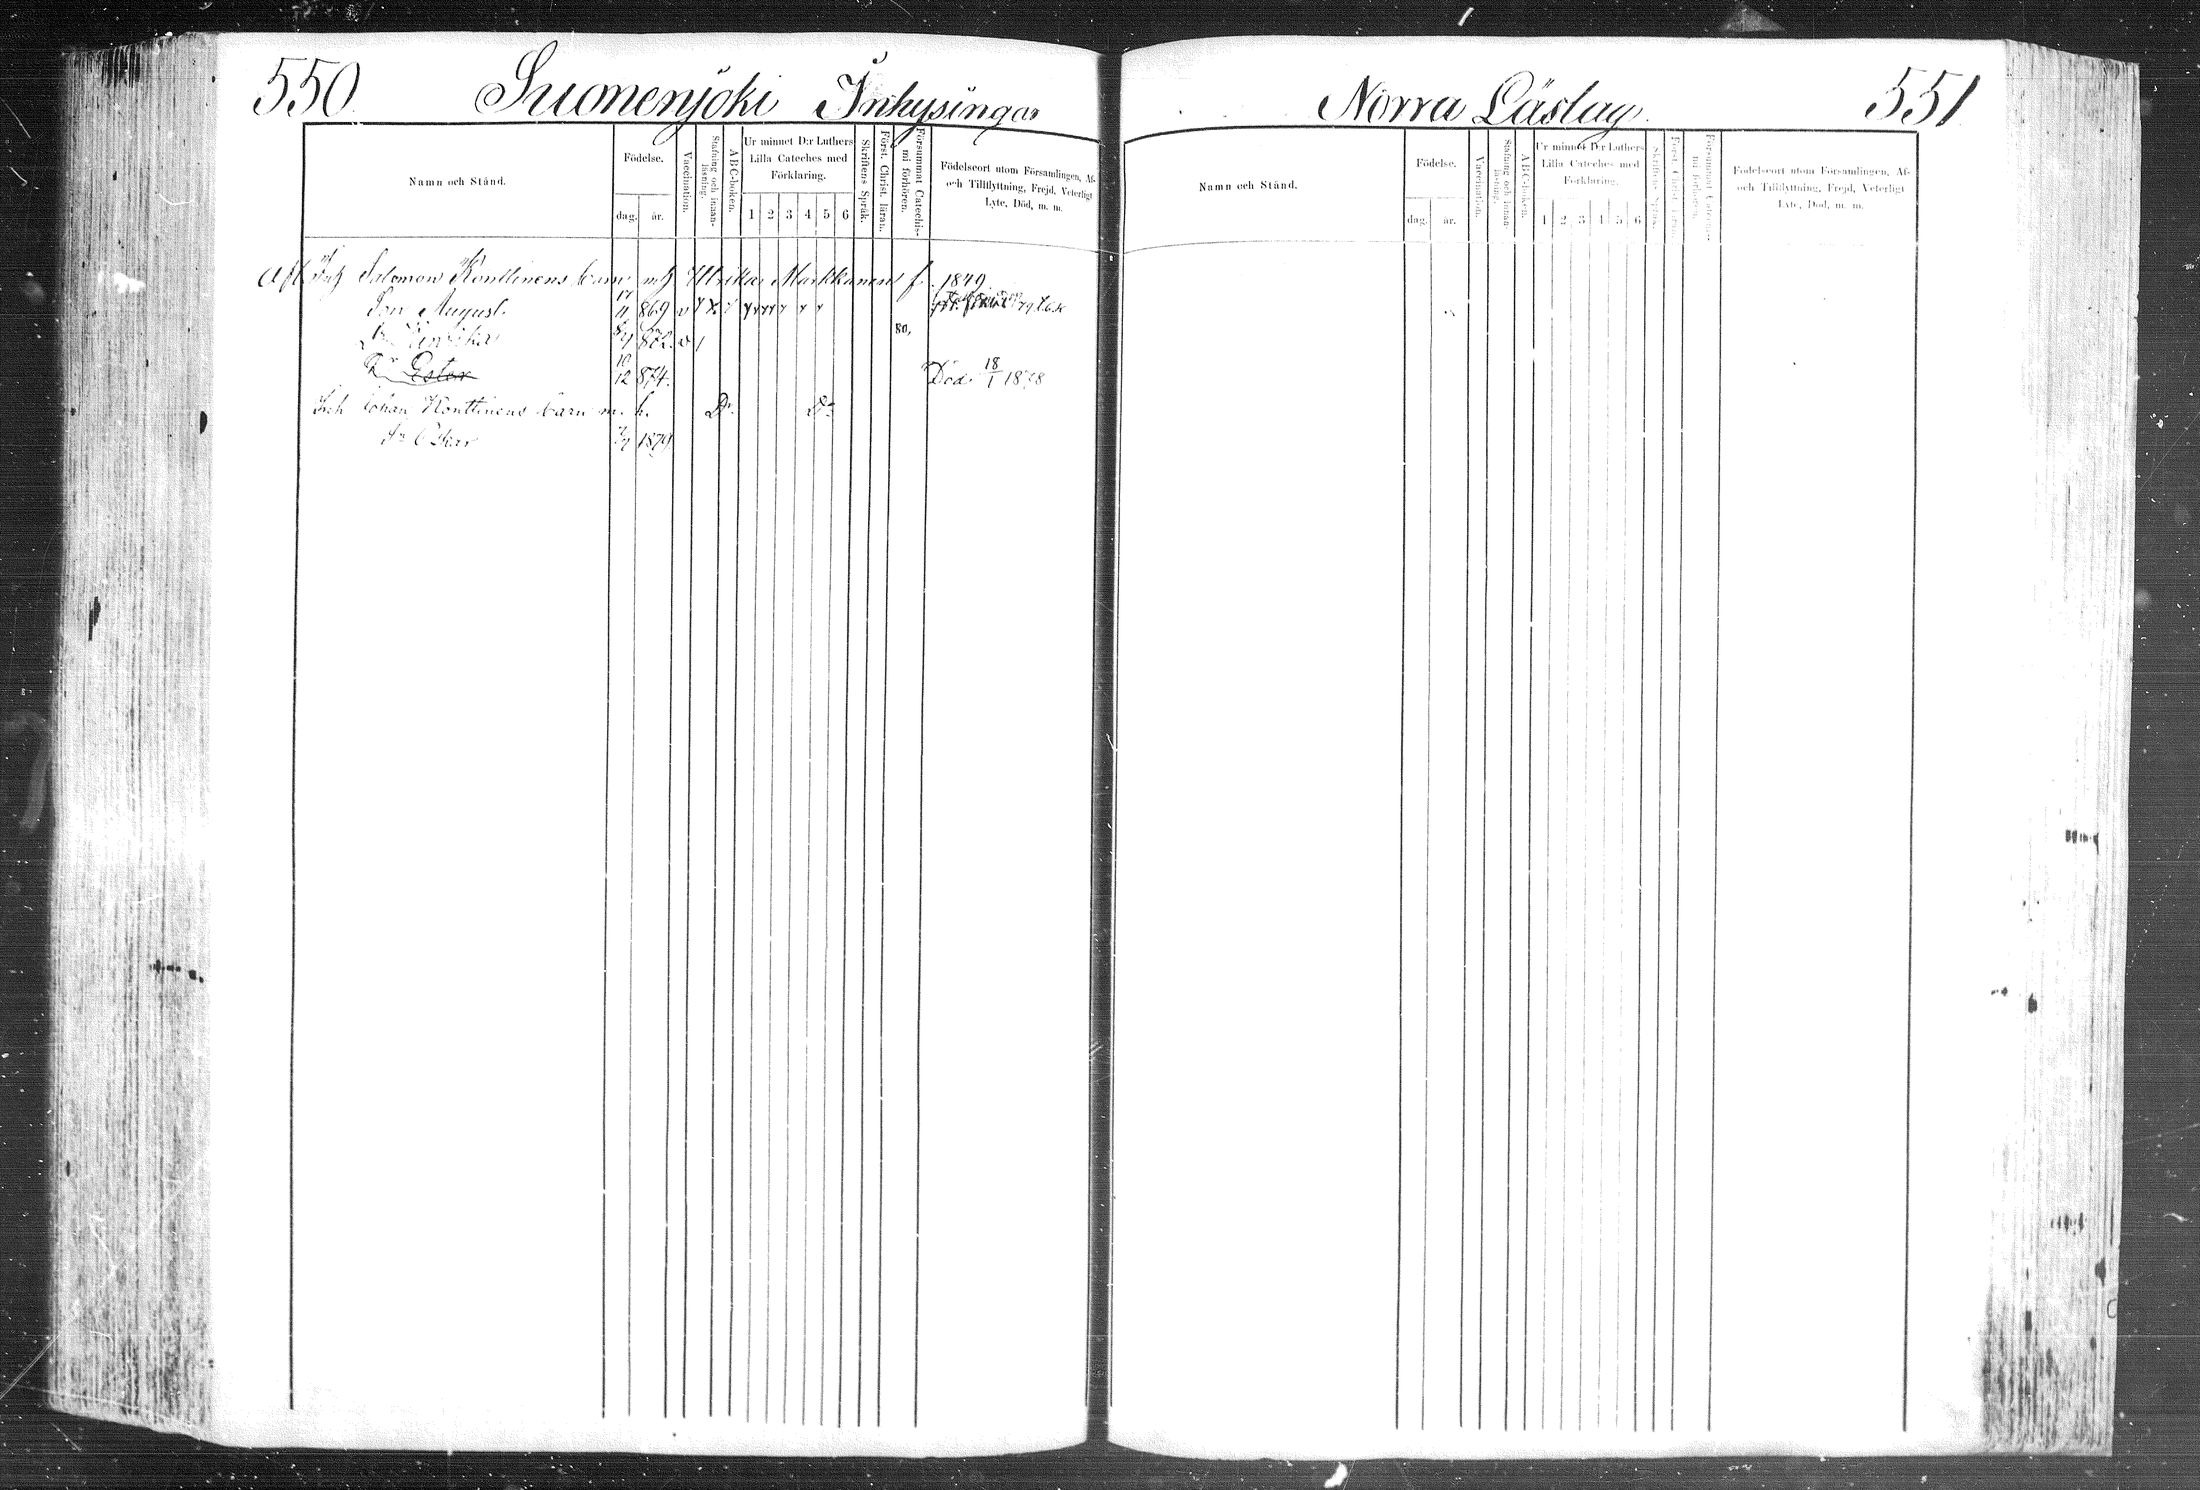 550 Suonenjoki Inhysingar
Norra Läslag. 551
Namn och Stånd.
Födelse.
dag. år.
Vaccination.
Stafning och innan-läsning.
ABC-boken.
Ur minnet D:r Luthers
Lilla Cateches med
Förklaring.
1 2 3 4 5 6
Skriftens Språk.
Först. Christ. läran.
Försummat Catechis-mi förhören.
Födelseort utom Församlingen, Af-
och Tillflyttning, Frejd, Veterligt
Lyte, Död, m. m.
Salomon Konttinens barn m Ulrika Markkanen f. 1849.
Son August 17/11 869 v
872. v 80.
Dr Ester 10/12 874. Död 18/1 1878
Johan Konttinens barn m. h. Do Do
Sn Oskar 1879
Namn och Stånd.
Födelse.
dag. år.
Vaccination.
Stafning och innan-läsning.
ABC-boken.
Ur minnet D:r Luthers
Lilla Cateches med
Förklaring.
1 2 3 4 5 6
Skriftens Språk.
Först. Christ. läran.
Försummat Catechis-mi förhören.
Födelseort utom Församlingen, Af-
och Tillflyttning, Frejd, Veterligt
Lyte, Död, m. m.